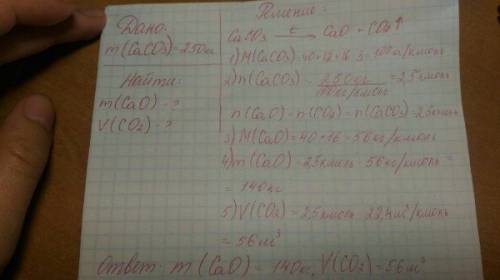 Дано:
m(CaCO3)=250кг
Найти:
m(CaO)-?
V(CO2)-?
Решение:
CaCO3 t→ CaO + CO2↑
1) M(CaCO3)=40+12+16·3=100кг/кмоль
2) n(CaCO3)=250кг/100кг/кмоль=2,5кмоль
n(CaO)=n(CO2)=n(CaCO3)=2,5кмоль
3) M(CaO)=40+16=56кг/кмоль
4) m(CaO)=2,5кмоль·56кг/кмоль=
=140кг
5) V(CO2)=2,5кмоль·22,4м³/кмоль
=56м³
Ответ: m(CaO)=140кг, V(CO2)=56м³